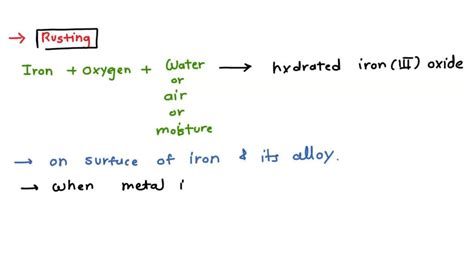 → Rusting
Iron + oxygen + Water → hxdrated iron (III) oxide
or
air
or
moisture
→ on surfuce of iron & its alloy.
→ when metal i